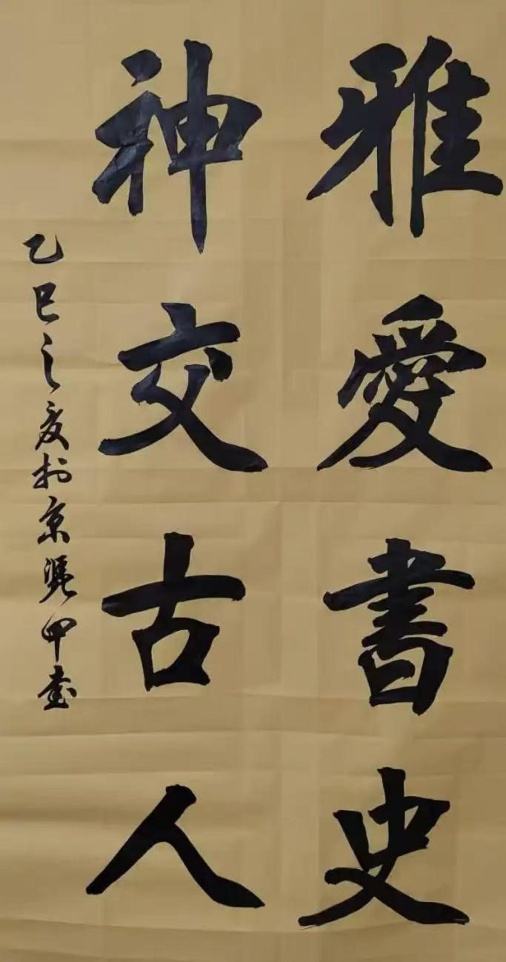 雅愛書史
神交古人
乙巳之夏於京